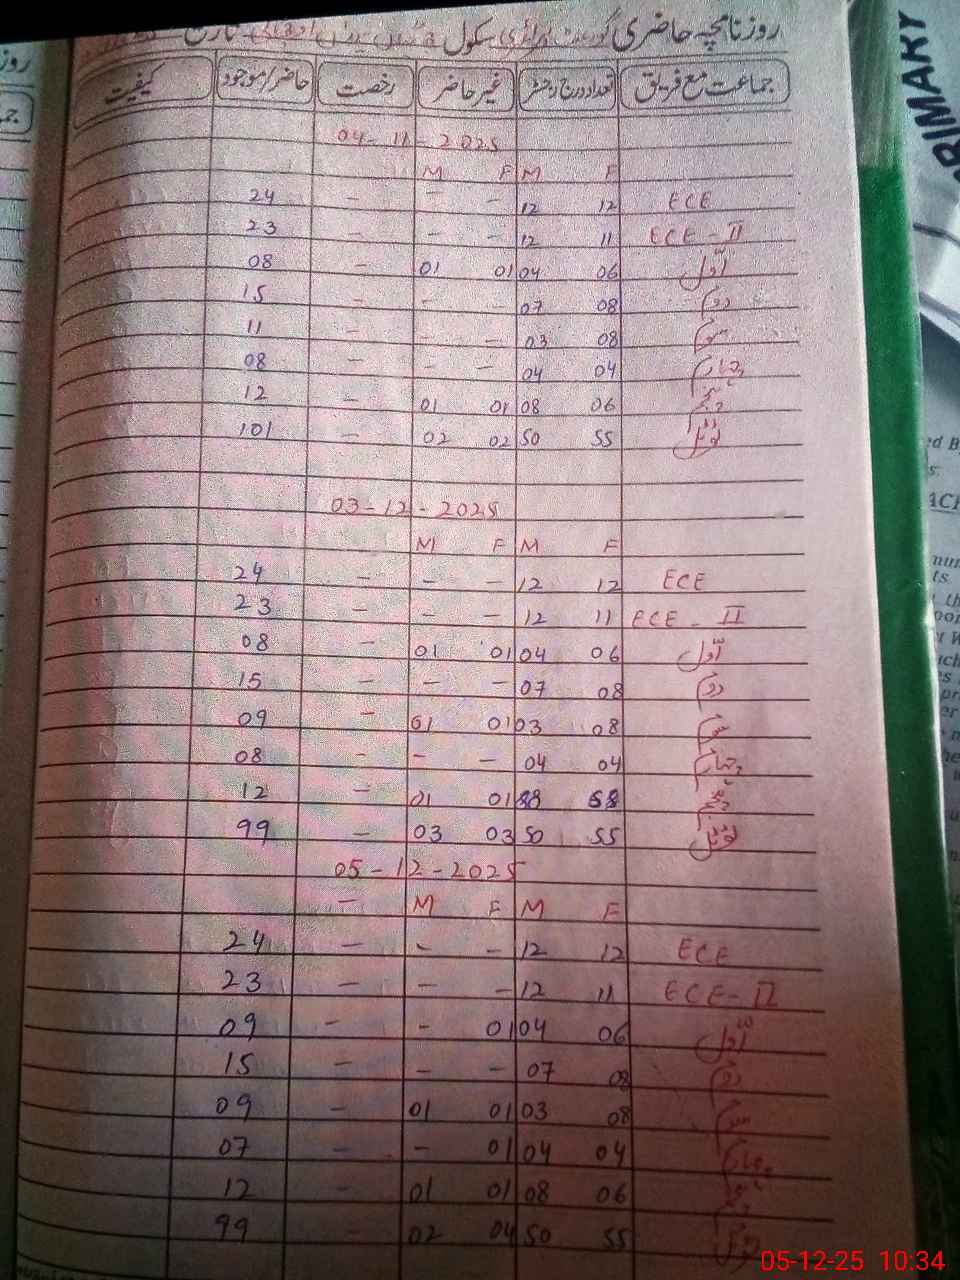 روزنامچہ حاضری گورنمنٹ پرائمری سکول
جماعت مع فریق تعداد درج رجسٹر غیر حاضر رخصت حاضر/موجود کیفیت
04-11-2025
M F M F
24 - - - 12 12 ECE
23 - - - 12 11 ECE-II
08 - 01 01 04 06 اوّل
15 - - - 07 08 دوم
11 - - - 03 08 سوم
08 - - - 04 04 چہارم
12 - 01 01 08 06 پنجم
101 - 02 02 50 55 ٹوٹل
03-12-2025
M F M F
24 - - - 12 12 ECE
23 - - - 12 11 ECE-II
08 - 01 01 04 06 اوّل
15 - - - 07 08 دوم
09 - 01 01 03 08 سوم
08 - - - 04 04 چہارم
12 - 01 01 پنجم
99 - 03 03 50 55 ٹوٹل
05-12-2025
- M F M F
24 - - - 12 12 ECE
23 - - - 12 11 ECE-II
09 - - 01 04 06 اوّل
15 - - - 07 08 دوم
09 - 01 01 03 08 سوم
07 - - 01 04 04 چہارم
12 - 01 01 08 06 پنجم
99 - 02 04 50 55 ٹوٹل
05-12-25 10:34